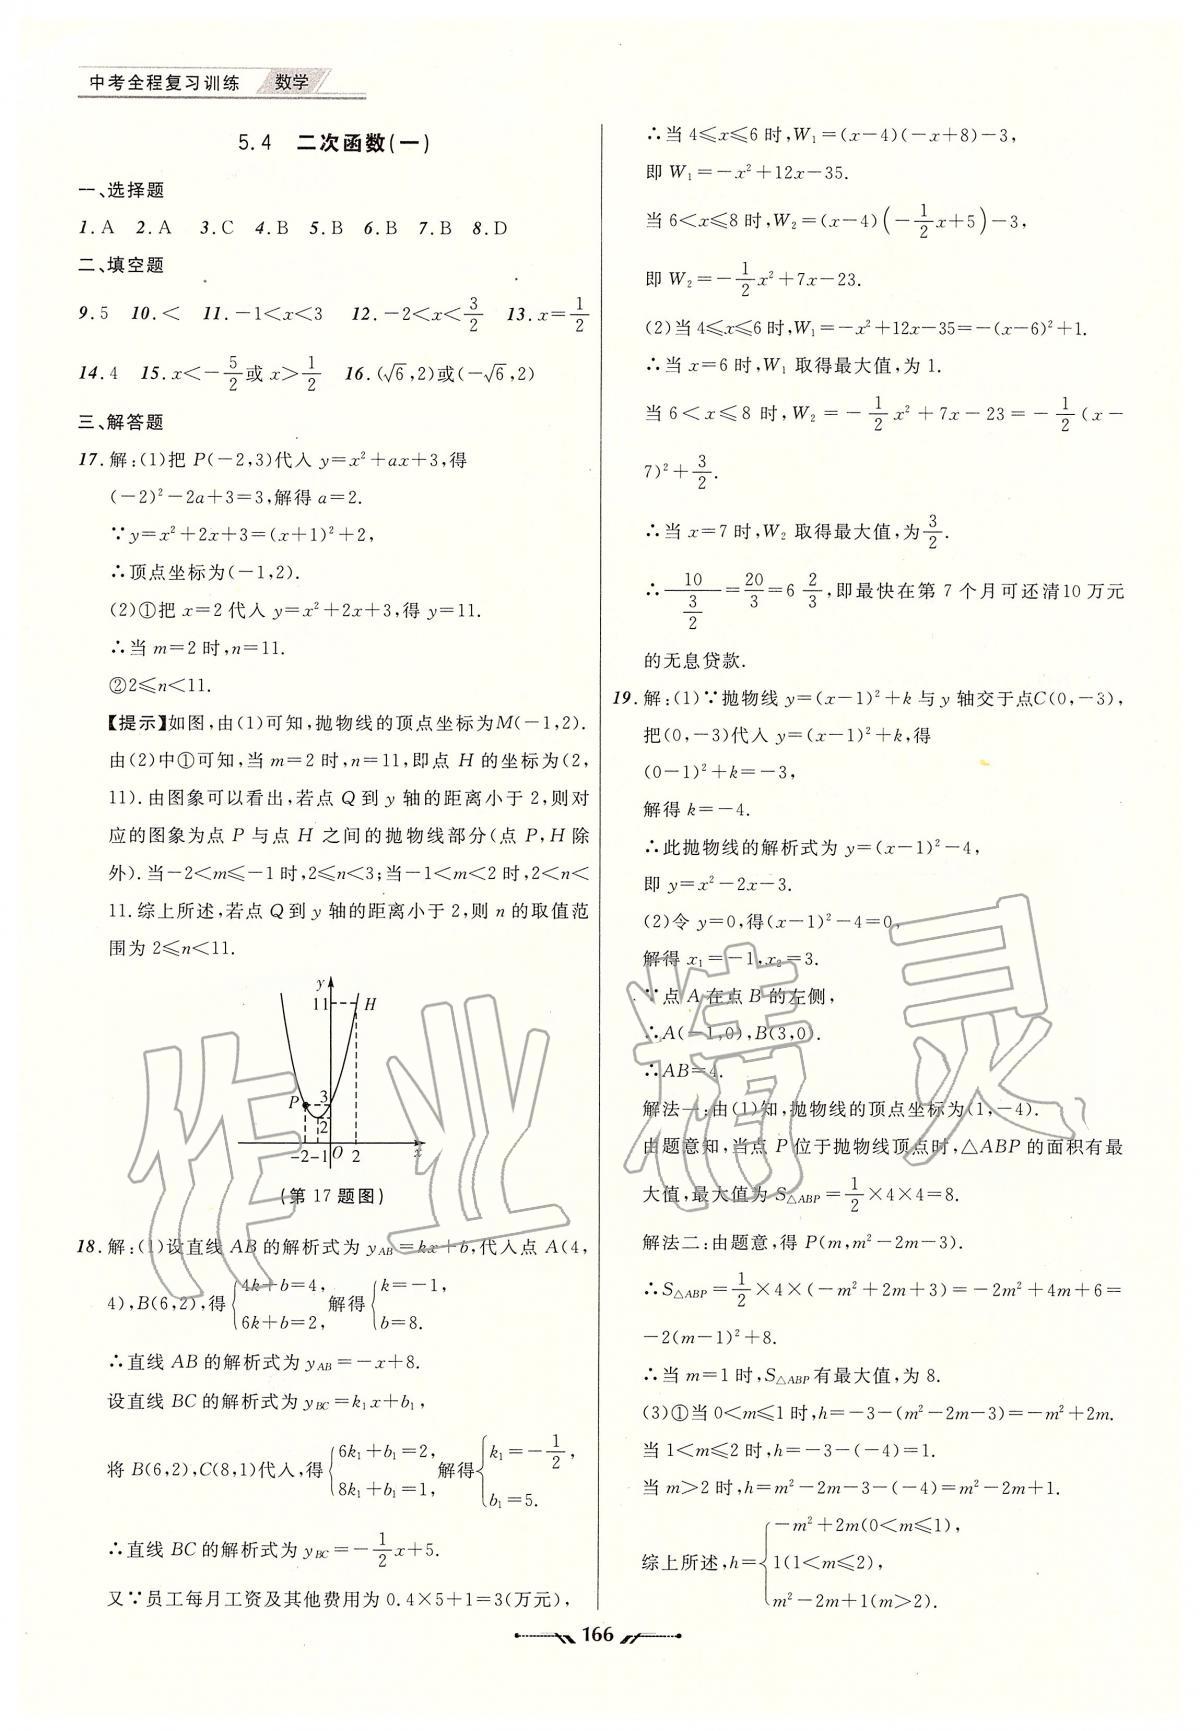 中考全程复习训练 数学
5.4 二次函数(一)
一、选择题
1.A 2.A 3.C 4.B 5.B 6.B 7.B 8.D
二、填空题
9.5 10.< 11.-1<x<3 12.-2<x<3/2 13.x=1/2
14.4 15.x<-5/2或x>1/2 16.(√6,2)或(-√6,2)
三、解答题
17.解:(1)把P(-2,3)代入y=x²+ax+3,得
(-2)²-2a+3=3,解得a=2.
∵y=x²+2x+3=(x+1)²+2,
∴顶点坐标为(-1,2).
(2)①把x=2代入y=x²+2x+3,得y=11.
∴当m=2时,n=11.
②2≤n<11.
【提示】如图,由(1)可知,抛物线的顶点坐标为M(-1,2).
由(2)中①可知,当m=2时,n=11,即点H的坐标为(2,
11).由图象可以看出,若点Q到y轴的距离小于2,则对
应的图象为点P与点H之间的抛物线部分(点P,H除
外).当-2<m≤-1时,2≤n<3;当-1<m<2时,2<n<
11.综上所述,若点Q到y轴的距离小于2,则n的取值范
围为2≤n<11.
y
11 H
P 3
2
-2 -1 O 2 x
(第17题图)
18.解:(1)设直线AB的解析式为y_AB=kx+b,代入点A(4,
4),B(6,2),得{4k+b=4, 6k+b=2, 解得{k=-1, b=8.
∴直线AB的解析式为y_AB=-x+8.
设直线BC的解析式为y_BC=k₁x+b₁,
将B(6,2),C(8,1)代入,得{6k₁+b₁=2, 8k₁+b₁=1, 解得{k₁=-1/2, b₁=5.
∴直线BC的解析式为y_BC=-1/2x+5.
又∵员工每月工资及其他费用为0.4×5+1=3(万元),
∴当4≤x≤6时,W₁=(x-4)(-x+8)-3,
即W₁=-x²+12x-35.
当6<x≤8时,W₂=(x-4)(-1/2x+5)-3,
即W₂=-1/2x²+7x-23.
(2)当4≤x≤6时,W₁=-x²+12x-35=-(x-6)²+1.
∴当x=6时,W₁取得最大值,为1.
当6<x≤8时,W₂=-1/2x²+7x-23=-1/2(x-
7)²+3/2.
∴当x=7时,W₂取得最大值,为3/2.
∴10/(3/2)=20/3=6 2/3,即最快在第7个月可还清10万元
的无息贷款.
19.解:(1)∵抛物线y=(x-1)²+k与y轴交于点C(0,-3),
把(0,-3)代入y=(x-1)²+k,得
(0-1)²+k=-3,
解得k=-4.
∴此抛物线的解析式为y=(x-1)²-4,
即y=x²-2x-3.
(2)令y=0,得(x-1)²-4=0,
解得x₁=-1,x₂=3.
∵点A在点B的左侧,
∴A(-1,0),B(3,0).
∴AB=4.
解法一:由(1)知,抛物线的顶点坐标为(1,-4).
由题意知,当点P位于抛物线顶点时,△ABP的面积有最
大值,最大值为S△ABP=1/2×4×4=8.
解法二:由题意,得P(m,m²-2m-3).
∴S△ABP=1/2×4×(-m²+2m+3)=-2m²+4m+6=
-2(m-1)²+8.
∴当m=1时,S△ABP有最大值,为8.
(3)①当0<m≤1时,h=-3-(m²-2m-3)=-m²+2m.
当1<m≤2时,h=-3-(-4)=1.
当m>2时,h=m²-2m-3-(-4)=m²-2m+1.
综上所述,h={-m²+2m(0<m≤1), 1(1<m≤2), m²-2m+1(m>2).
166
作业精灵